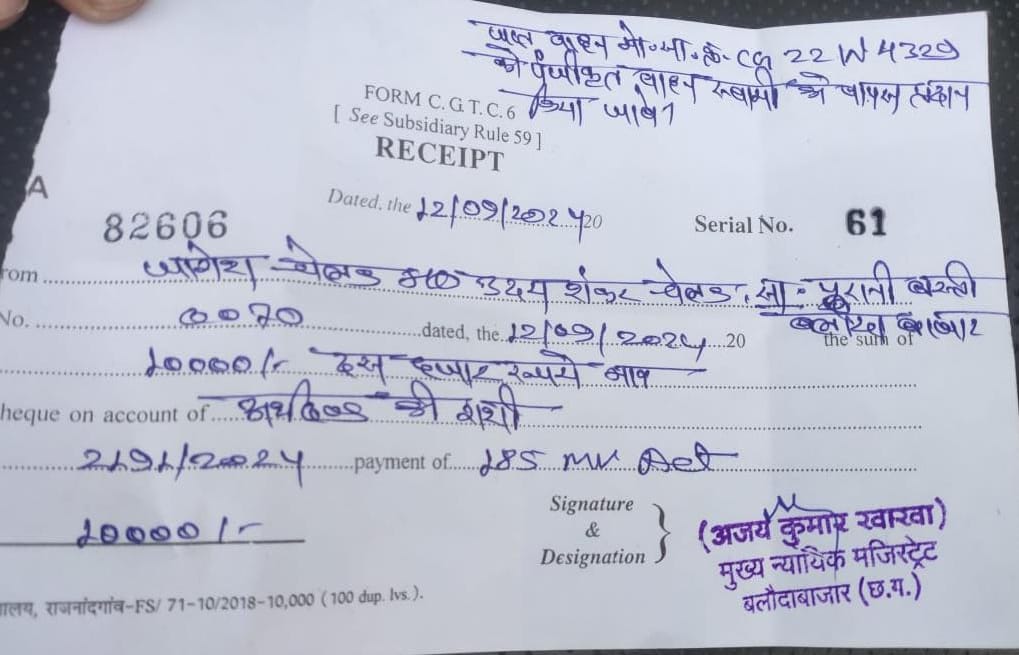 जप्त वाहन मो.सा.क्र. CG 22 W 4329
को पंजीकृत वाहन स्वामी को वापस प्रदान
किया जावे।
FORM C.G.T.C.6
[ See Subsidiary Rule 59 ]
RECEIPT
A
82606
Dated, the 12/09/2024 20
Serial No. 61
rom उदय शंकर सा. पुरानी बस्ती
No. 0070 dated, the 12/09/2024 20 the sum of
10000/- दस हजार रूपये मात्र
heque on account of अर्थदण्ड की राशी
2191/2024 payment of 185 MV Act
Signature
&
Designation
10000/-
(अजय कुमार खाखा)
मुख्य न्यायिक मजिस्ट्रेट
बलौदाबाजार (छ.ग.)
ालय, राजनांदगांव-FS/ 71-10/2018-10,000 (100 dup. lvs.).